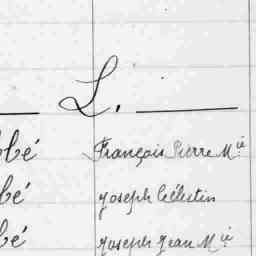 L.
bbé François Pierre Mie
bé Joseph Célestin
bé Joseph Jean Mie